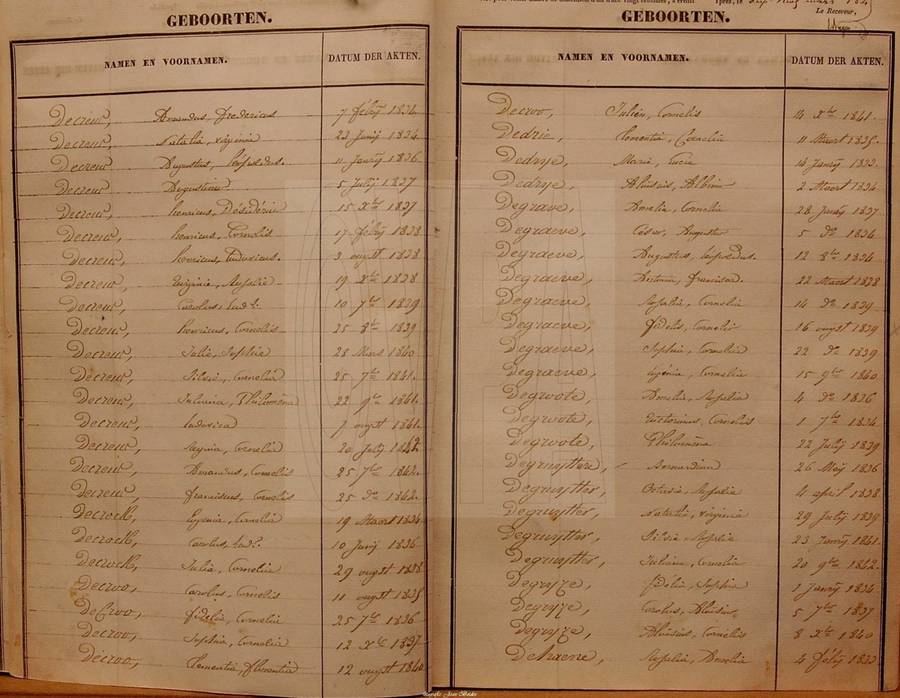 GEBOORTEN.
NAMEN EN VOORNAMEN. DATUM DER AKTEN.
Decreus, Amandus, Fredericus 7 febry 1834
Decreus, Natalia, virginia 23 Junij 1834
Decreus Augustus, Leopoldus. 11 Janrij 1836
Decreus Augustinus 5 Julij 1837
Decreus, henricus, Désidérius 15 Xbre 1837
Decreus, henricus, Cornelis 17 febry 1838
Decreus, henricus, Ludovicus. 3 augst 1838
Decreus, Virginia, Rosalia 19 Xbre 1838
Decreus, Carolus, Lud. 10 7bre 1839
Decreus, henricus, Cornelis 25 8bre 1839
Decreus, Julia, Sophia 28 Mars 1840
Decreus, Silvia, Cornelia 25 7bre 1841.
Decreus, Philomena 22 9bre 1841.
Decreus, Ludovica augst 1841.
Decreus, Cornelia 20 July 1842
Decreus, Amandus, Cornelis 25 7bre 1842.
Decreus, franciscus, Cornelis 25 do 1842.
Decrock, Eugenia, Cornelia 19 Maart 1834
Decrock, Carolus, Lud. 10 Junij 1836
Decrock, Julia, Cornelia 29 augst 1838
Decroo, Carolus, Cornelis 11 augst 1835
DeCroo, fidelia, Cornelia 25 7bre 1836
Decroo, Sophia, Cornelia 12 Xbre 1837
Decroo, Clementia, florentia 12 augst 1840
Le Receveur,
GEBOORTEN.
NAMEN EN VOORNAMEN. DATUM DER AKTEN.
Decroo, Julien, Cornelis 14 Xbre 1841.
Dedrie, Clementia, Cornelia 11 Maart 1835.
Dedrye, Maria, Lucia 14 Janrij 1833.
Dedrye, Aloisius, Albin 2 Maart 1834
Degrave, Amelia, Cornelia 28 Junij 1837
Degraeve, César, Auguste 5 do 1834
Degraeve, Augustus, Leopoldus. 12 8bre 1834
Degraeve, Antonia, francisca. 22 Maart 1838
Degraeve, Rosalia, Cornelia 14 do 1839
Degraeve, fidelis, Cornelis 16 augst 1839
Degraeve, Sophia, Cornelia 22 do 1839
Degraeve, Eugenia, Cornelia 15 9bre 1840
Degroote, Amelia, Rosalia 4 do 1836
Degroote, Victorinus, Cornelis 1 7bre 1834
Degroote, Philomena 22 Julij 1839
Degruijttere, Bernardina 26 Meij 1836
Degruijtter, Octavia, Rosalia 4 april 1838
Degruytter, Natalia, virginia 29 July 1839
Degruytter, Silvia, Rosalia 23 Janrij 1841.
Degruytter, Juliana, Cornelia 20 9bre 1842.
Degryze, fidelia, Sophia 1 Janrij 1834
Degryze, Carolus, Aloisius, 5 7bre 1837
Degryze, Aloisius, Cornelis 8 Xbre 1840
DeHaene, Rosalia, Amelia 4 febry 1833